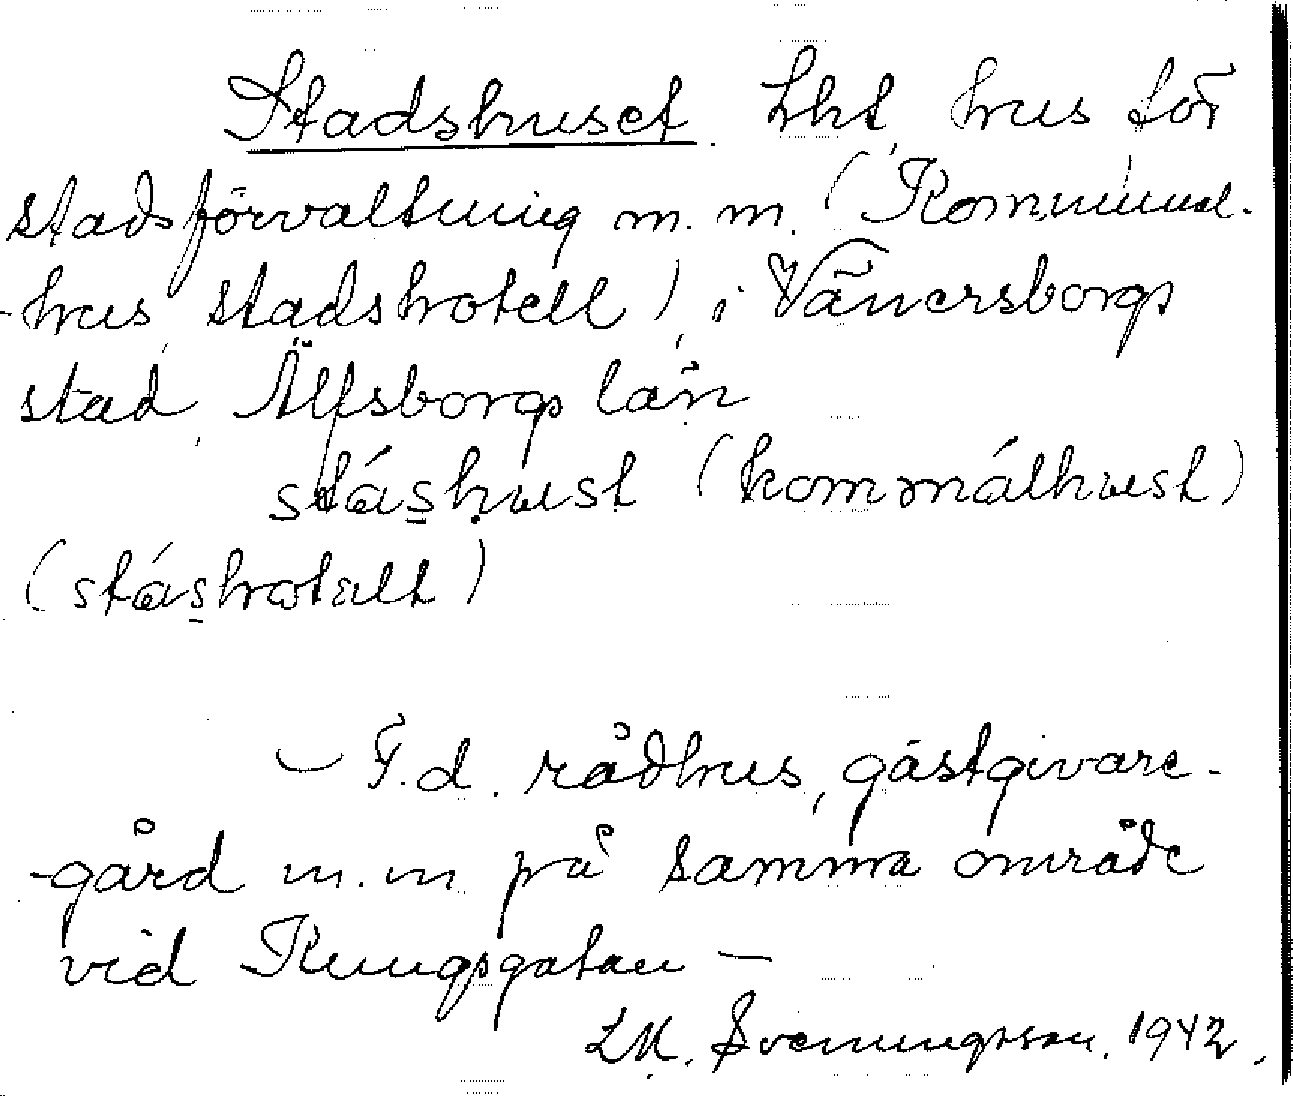 Stadshuset, hht, hus för
stadsförvaltning m. m. (Kommunal-
-hus, stadshotell), i Vänersborgs
stad, Älfsborgs län
stáshust (kommnálhust)
(stáshotallt)
– F. d. rådhus, gästgivare-
-gård m. m. på samma område
vid Kungsgatan –
Svenungsson. 1942.